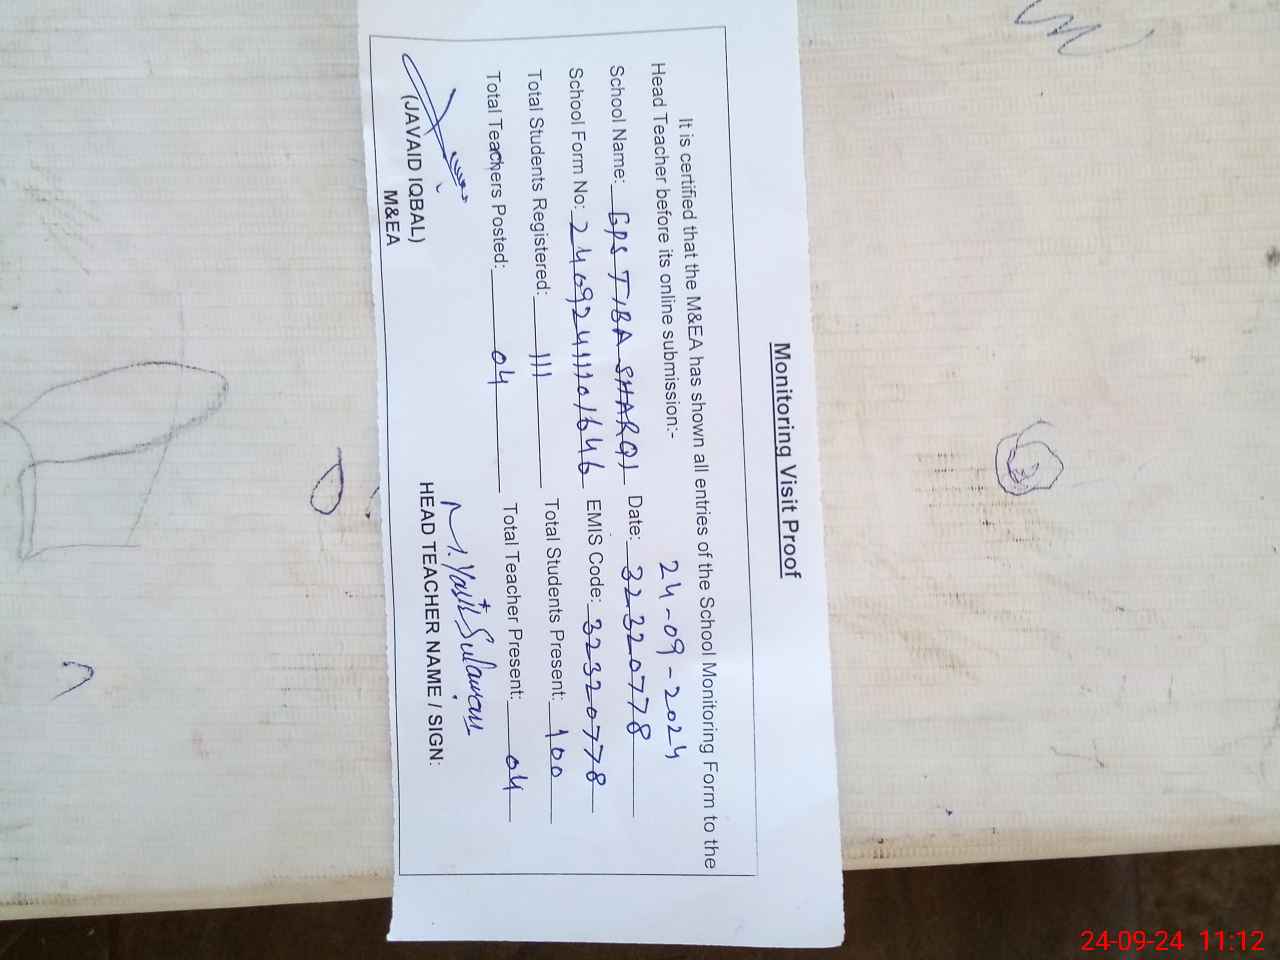 Monitoring Visit Proof
It is certified that the M&EA has shown all entries of the School Monitoring Form to the
Head Teacher before its online submission:-
24-09-2024
School Name: GPS TIBA SHARQI Date: 32320778
School Form No: 24092411101646 EMIS Code: 32320778
Total Students Registered: 111 Total Students Present: 100
Total Teachers Posted: 04 Total Teacher Present: 04
M. Yasir Sulaman
(JAVAID IQBAL)
M&EA
HEAD TEACHER NAME / SIGN:
24-09-24 11:12